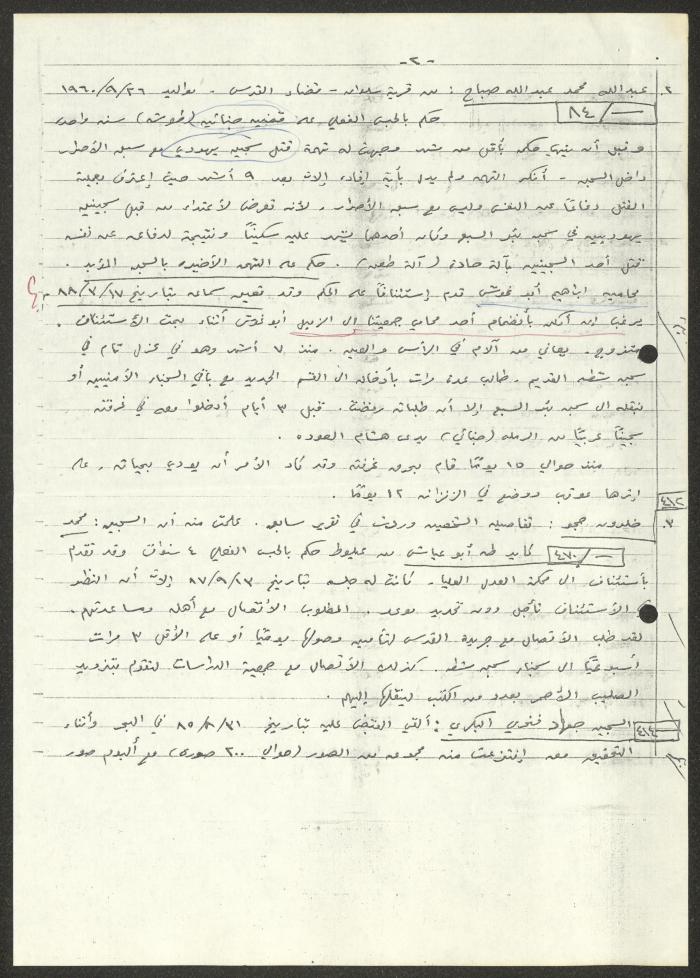 -٢-
٢. عبدالله محمد عبدالله صباح : من قرية سلوان - قضاء القدس - مواليد ١٩٦٠/٩/٢٦
٨٤/— حكم بالحبس الفعلي على قضية جنائية (طوشه) سنه واحده
وقبل أن ينهي حكمه بأقل من شهر وجهت له تهمة قتل سجين يهودي مع سبق الأصرار
داخل السجن - أنكر التهمه ولم يدل بأية إفاده إلا بعد ٩ أشهر حيث إعترف بعملية
القتل دفاعًا عن النفس وليس مع سبق الأصرار، لأنه تعرض لأعتداء من قبل سجينين
يهوديين في سجن بئر السبع وكان أحدهما يشهر عليه سكينًا ونتيجة لدفاعه عن نفسه
قتل أحد السجينين بآلة حادة (آلة طعن). حكم على التهمه الأخيره بالسجن المؤبد.
محاميه ابراهيم أبو غوش قدم إستئنافًا على الحكم وقد تعين سماعه بتاريخ ٨٨/٣/١٧ م
يرغب ابن أمكن بأنضمام أحد محامي جمعيتنا الى الزميل أبو غوش أثناء بحث الأستئناف.
متزوج. يعاني من آلام في الرأس والعين. منذ ٧ أشهر وهو في عزل تام في
سجن شطه القديم. طالب عدة مرات بأدخاله الى القسم الجديد مع باقي السجناء الأمنيين أو
نقله الى سجن بئر السبع إلا أن طلباته رفضت. قبل ٣ أيام أدخلوا معه في غرفته
سجينًا عربيًا من الرمله (جنائي) يدعى هشام العوده.
منذ حوالي ١٥ يومًا قام بحرق غرفته وقد كاد الأمر أن يودي بحياته، على
إثرها عوقب ووضع في الزنزانه ١٢ يومًا.
٤١٢
٣. خلدون حجو : تفاصيله الشخصيه وردت في تقرير سابق. علمت منه أن السجين: محمد
٤٧٠/— كايد طه أبو عياش من حكم بالحبس الفعلي ٤ سنوات وقد تقدم
بأستئناف الى محكمة العدل العليا. كانت له جلسه بتاريخ ٨٧/٩/٢٣ إلا أن النظر
في الأستئناف تأجل دون تحديد موعد. المطلوب الأتصال مع أهله ومساعدتهم.
لقد طلب الأتصال مع جريدة القدس لتأمين وصولها يوميًا أو على الأقل ٣ مرات
أسبوعيًا الى سجناء سجن شطه. كذلك الأتصال مع جمعية الدراسات لتقوم بتزويد
الصليب الأحمر بعدد من الكتب لينقلها إليهم.
٤١٤ السجين جهاد البكري: ألقي القبض عليه بتاريخ ٨٥/٨/٣١ في البحر وأثناء
التحقيق معه إنتزعت منه مجموعه من الصور (حوالي ٢٠٠ صوره) مع ألبوم صور